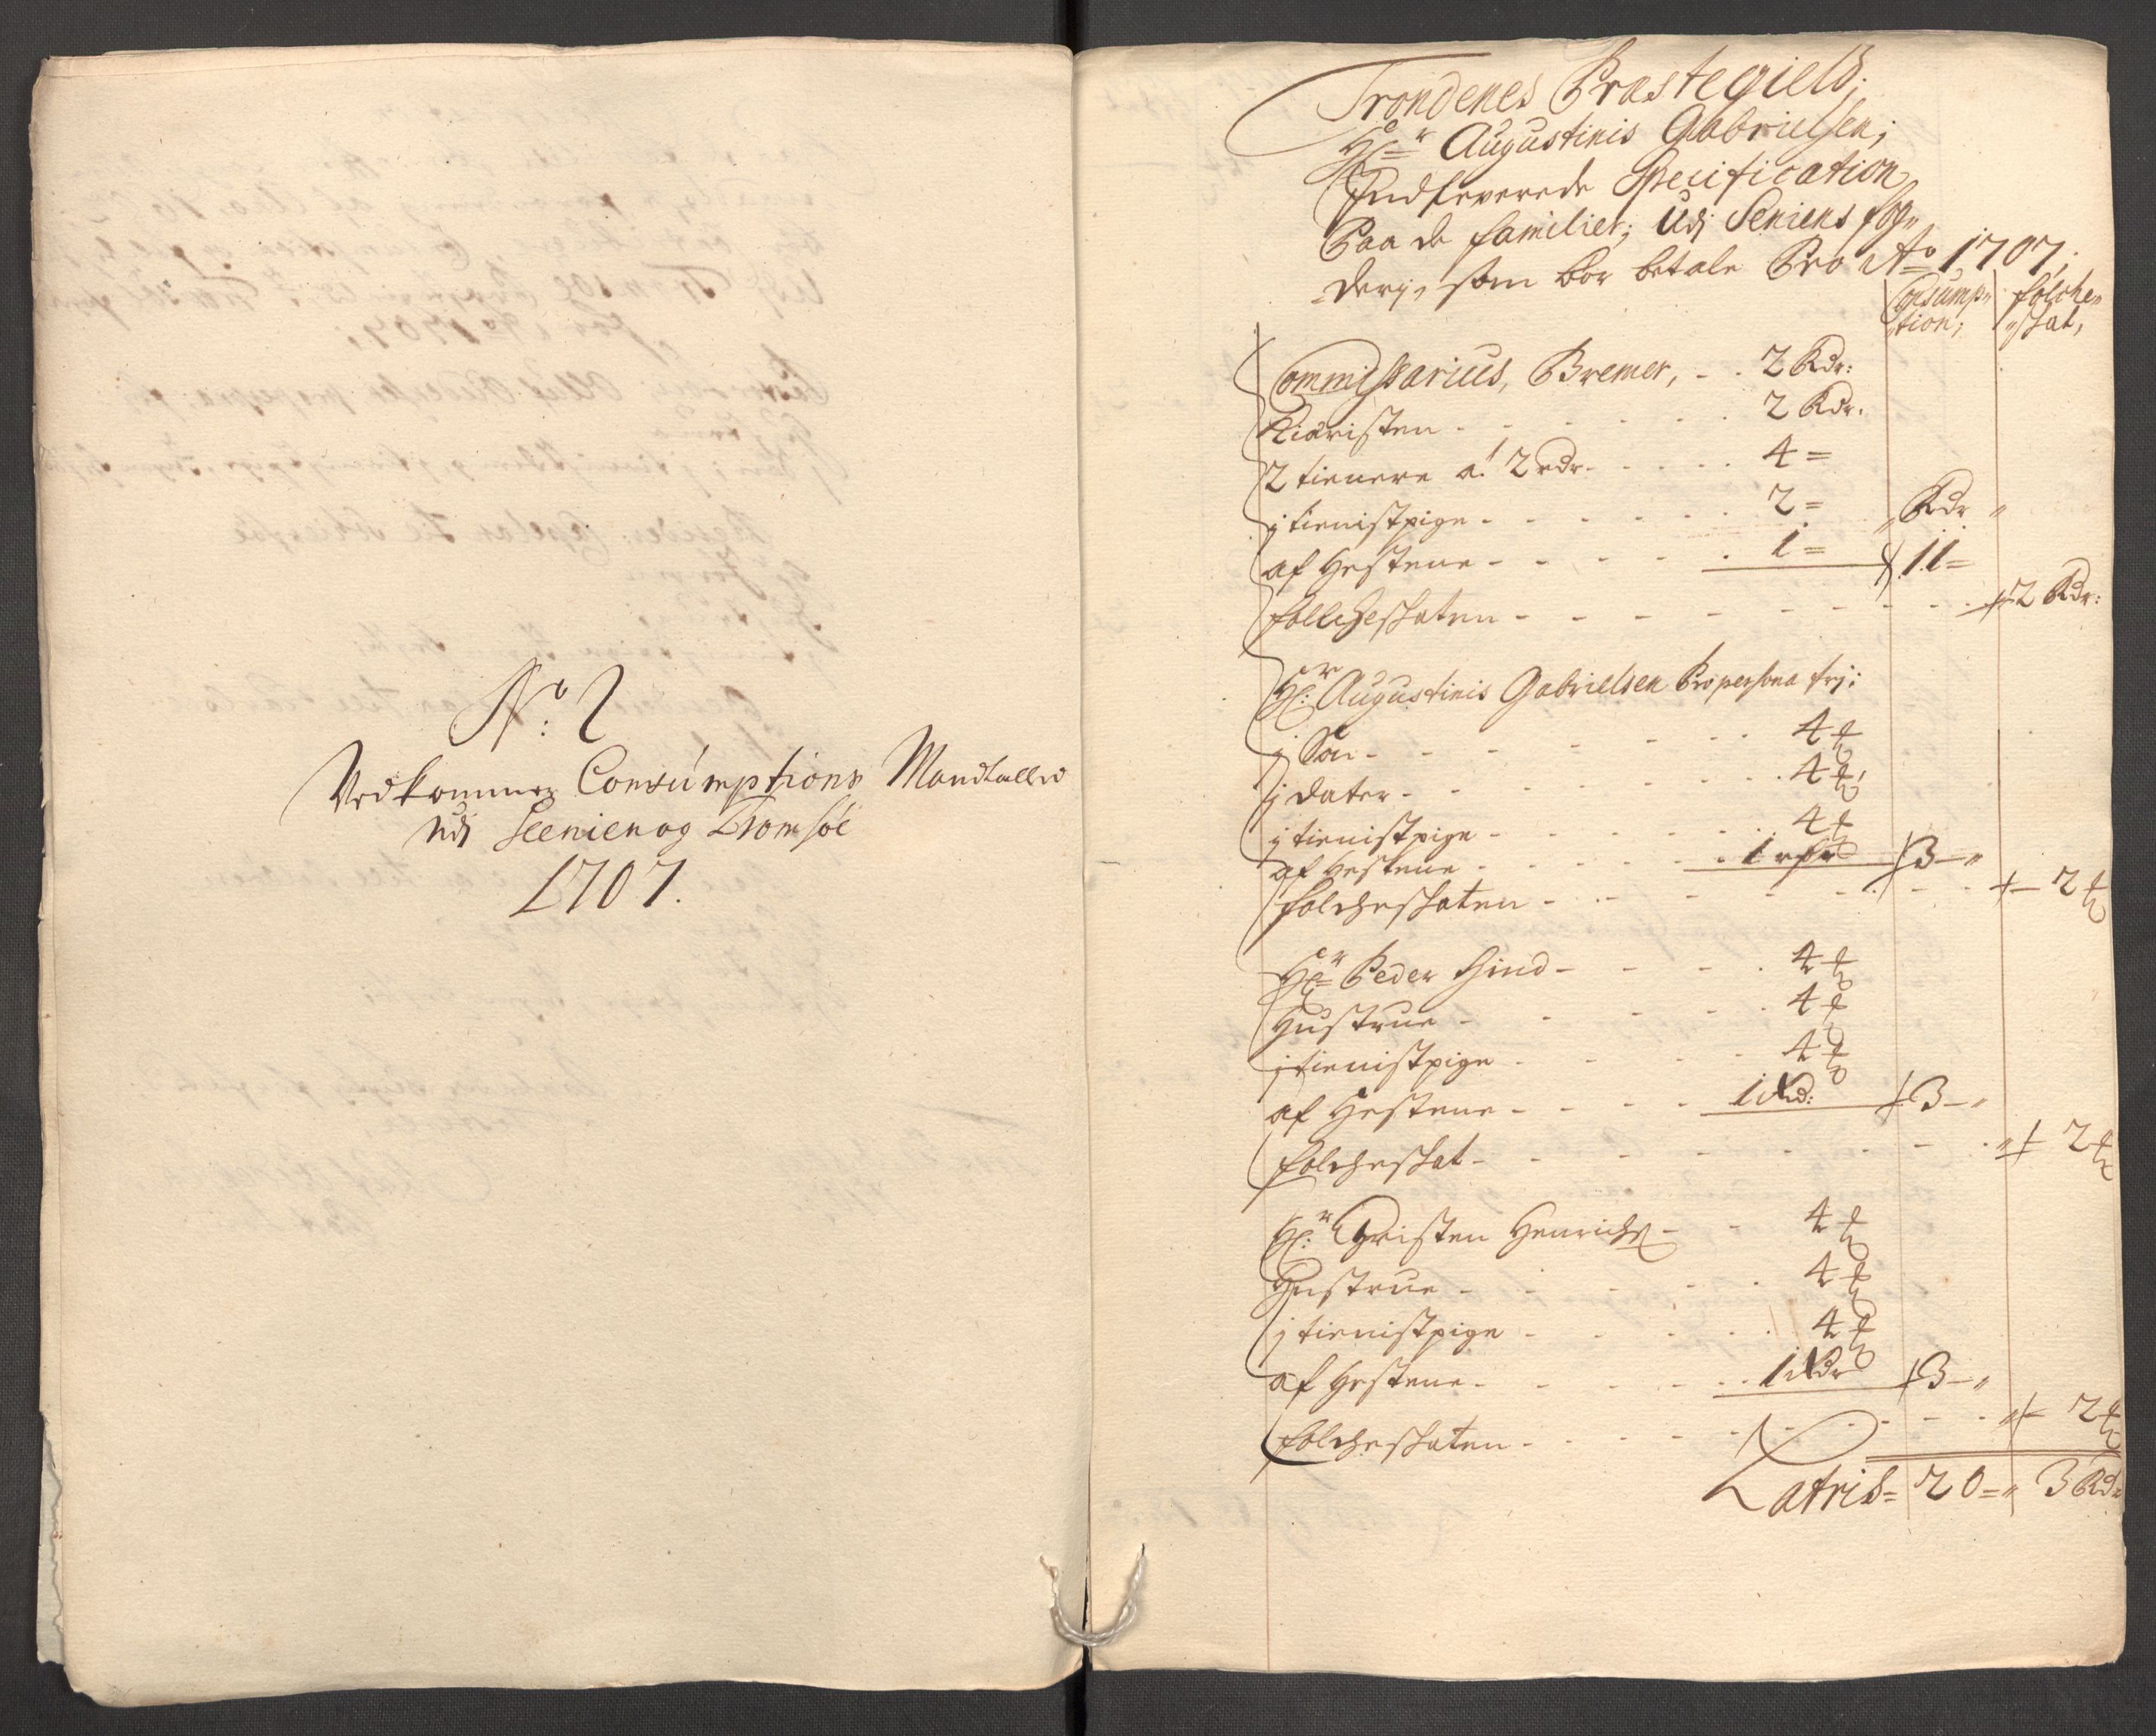 No: 2
Vedkommer Consumptions Mandtallene
udj Seenien og Tromsøe
1707.
Trondenes Præstegield;
Hr Augustinis Gabrielsen;
Indleverede Specification
Paa de familier; Udj Seniens fog„
derj, som bør betale Pro Ao 1707;
Consump„ folche„
tion; „skat,
Commissarius, Bremer, - . 2 Rdr:
Kiæristen - - - - 2 Rdr.
2 tienere a! 2 rdr - - - 4 =
j tienistpige - - - - 2 = „ Rdr „
af Hestene - - - - 1 = 11 =
folcheskaten - - - - 2 Rdr:
Hr: Augustinis Gabrielsen Pro persona frj;
j Søn - - - - 4 ₰
j dater - - - - 4 ₰
j tienistpige - - - - 4 ₰
af Hestene - - - - 1 rdr 3 - „
folcheskaten - - - - 2 ₰
Hr Peder Hind - - - 4 ₰
Hustrue - - - - 4 ₰
j tienistpige - - - - 4 ₰
af Hestene - - - - 1 Rd: 3 - „
folcheskat - - - - „ 2 ₰
Hr: Christen Henrichs - - 4 ₰
Hustrue - - - - 4 ₰
j tienistpige - - - - 4 ₰
af Hestene - - - - 1 Rdr 3 - „
folcheskaten - - - - „ 2 ₰
Latris = 20 = „ 3 Rdr